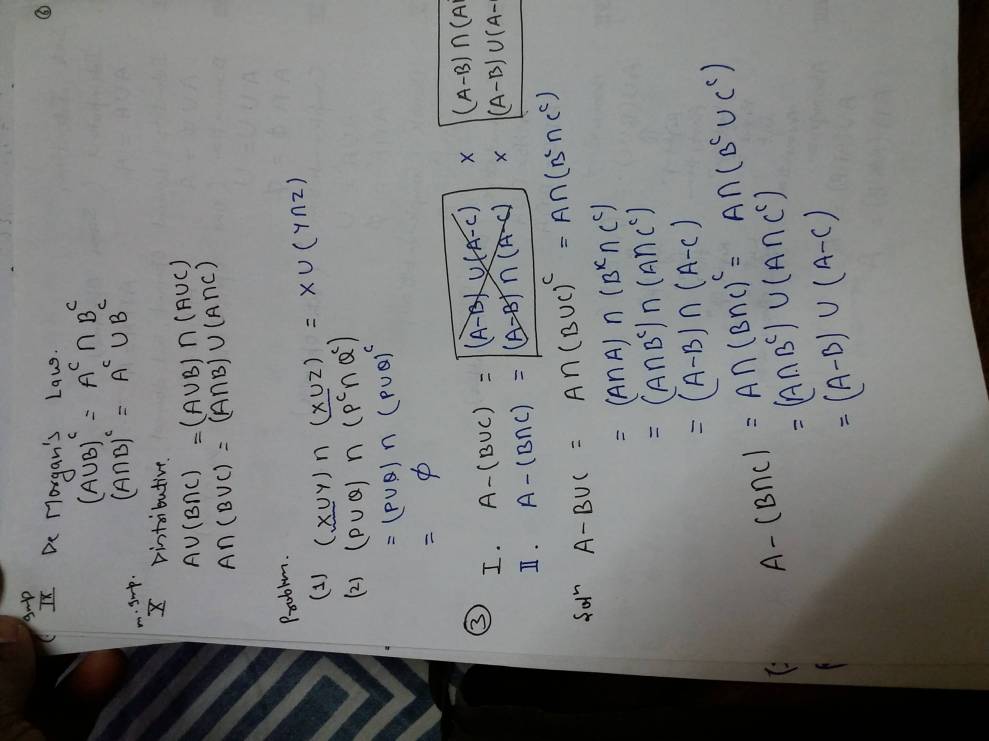 6
IX De Morgan's Law.
(A∪B)ᶜ = Aᶜ ∩ Bᶜ
(A∩B)ᶜ = Aᶜ ∪ Bᶜ
m. Imp.
X Distributive.
A∪(B∩C) = (A∪B)∩(A∪C)
A∩(B∪C) = (A∩B)∪(A∩C)
Problem.
(1) (X∪Y)∩(X∪Z) = X∪(Y∩Z)
(2) (P∪Q)∩(Pᶜ∩Qᶜ)
= (P∪Q)∩(P∪Q)ᶜ
= ϕ
③ I. A-(B∪C) = (A-B)∪(A-C) × (A-B)∩(A
II. A-(B∩C) = (A-B)∩(A-C) × (A-B)∪(A-
Solⁿ A-B∪C = A∩(B∪C)ᶜ = A∩(Bᶜ∩Cᶜ)
= (A∩A)∩(Bᶜ∩Cᶜ)
= (A∩Bᶜ)∩(A∩Cᶜ)
= (A-B)∩(A-C)
A-(B∩C) = A∩(B∩C)ᶜ = A∩(Bᶜ∪Cᶜ)
= (A∩Bᶜ)∪(A∩Cᶜ)
= (A-B)∪(A-C)